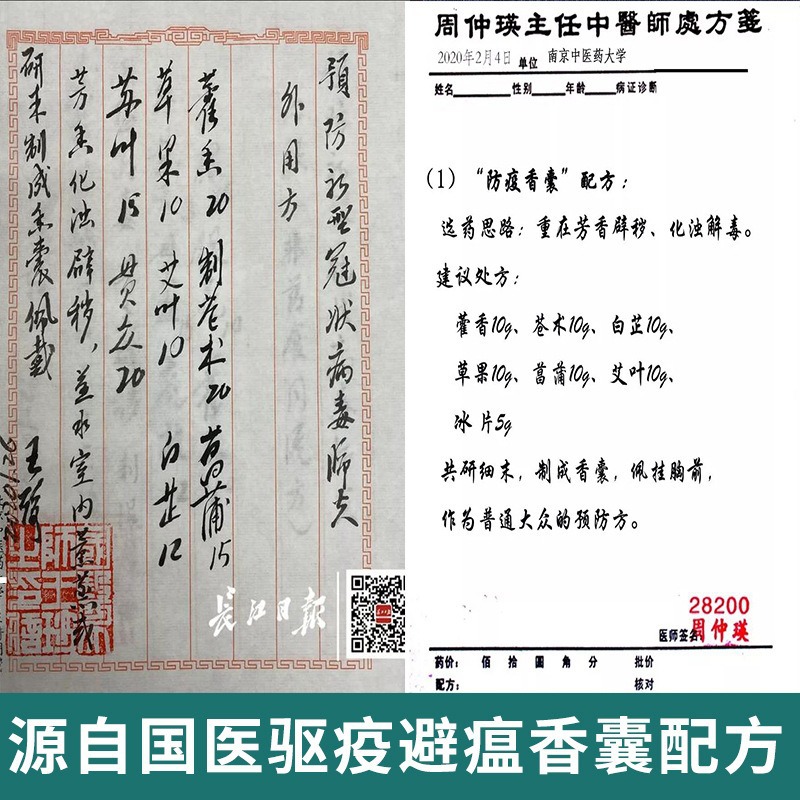 預防新型冠状病毒肺炎
外用方
藿香20 制苍术20 菖蒲15
草果10 艾叶10 白芷12
苏叶15 贯众20
芳香化浊辟秽，煎水室内薰蒸或
研末制成香囊佩戴 王琦
長江日報
周仲瑛主任中醫師處方箋
2020年2月4日 单位 南京中医药大学
姓名 性别 年龄 病证诊断
(1) “防疫香囊”配方：
选药思路：重在芳香辟秽、化浊解毒。
建议处方：
藿香10g、苍术10g、白芷10g、
草果10g、菖蒲10g、艾叶10g、
冰片5g
共研细末，制成香囊，佩挂胸前，
作为普通大众的预防方。
28200
医师签名 周仲瑛
药价： 佰 拾 圆 角 分 批价
配方： 核对
源自国医驱疫避瘟香囊配方